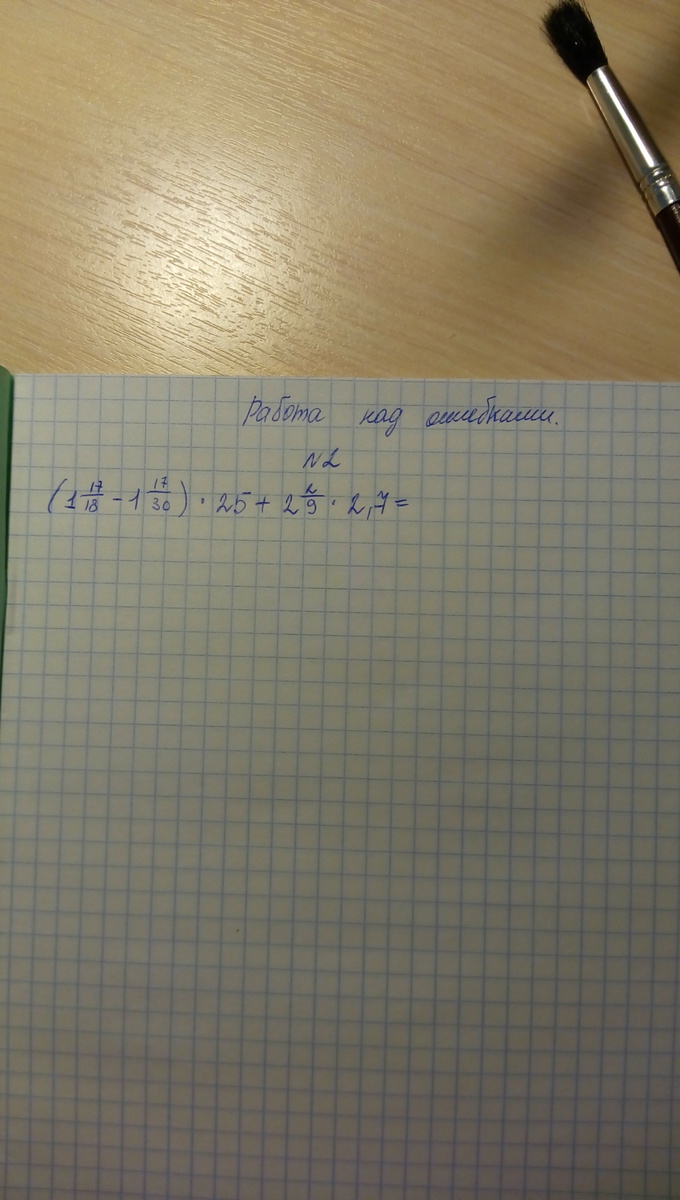 Работа над ошибками.
№2
(1 17/18 - 1 17/30) · 25 + 2 2/9 · 2,7 =